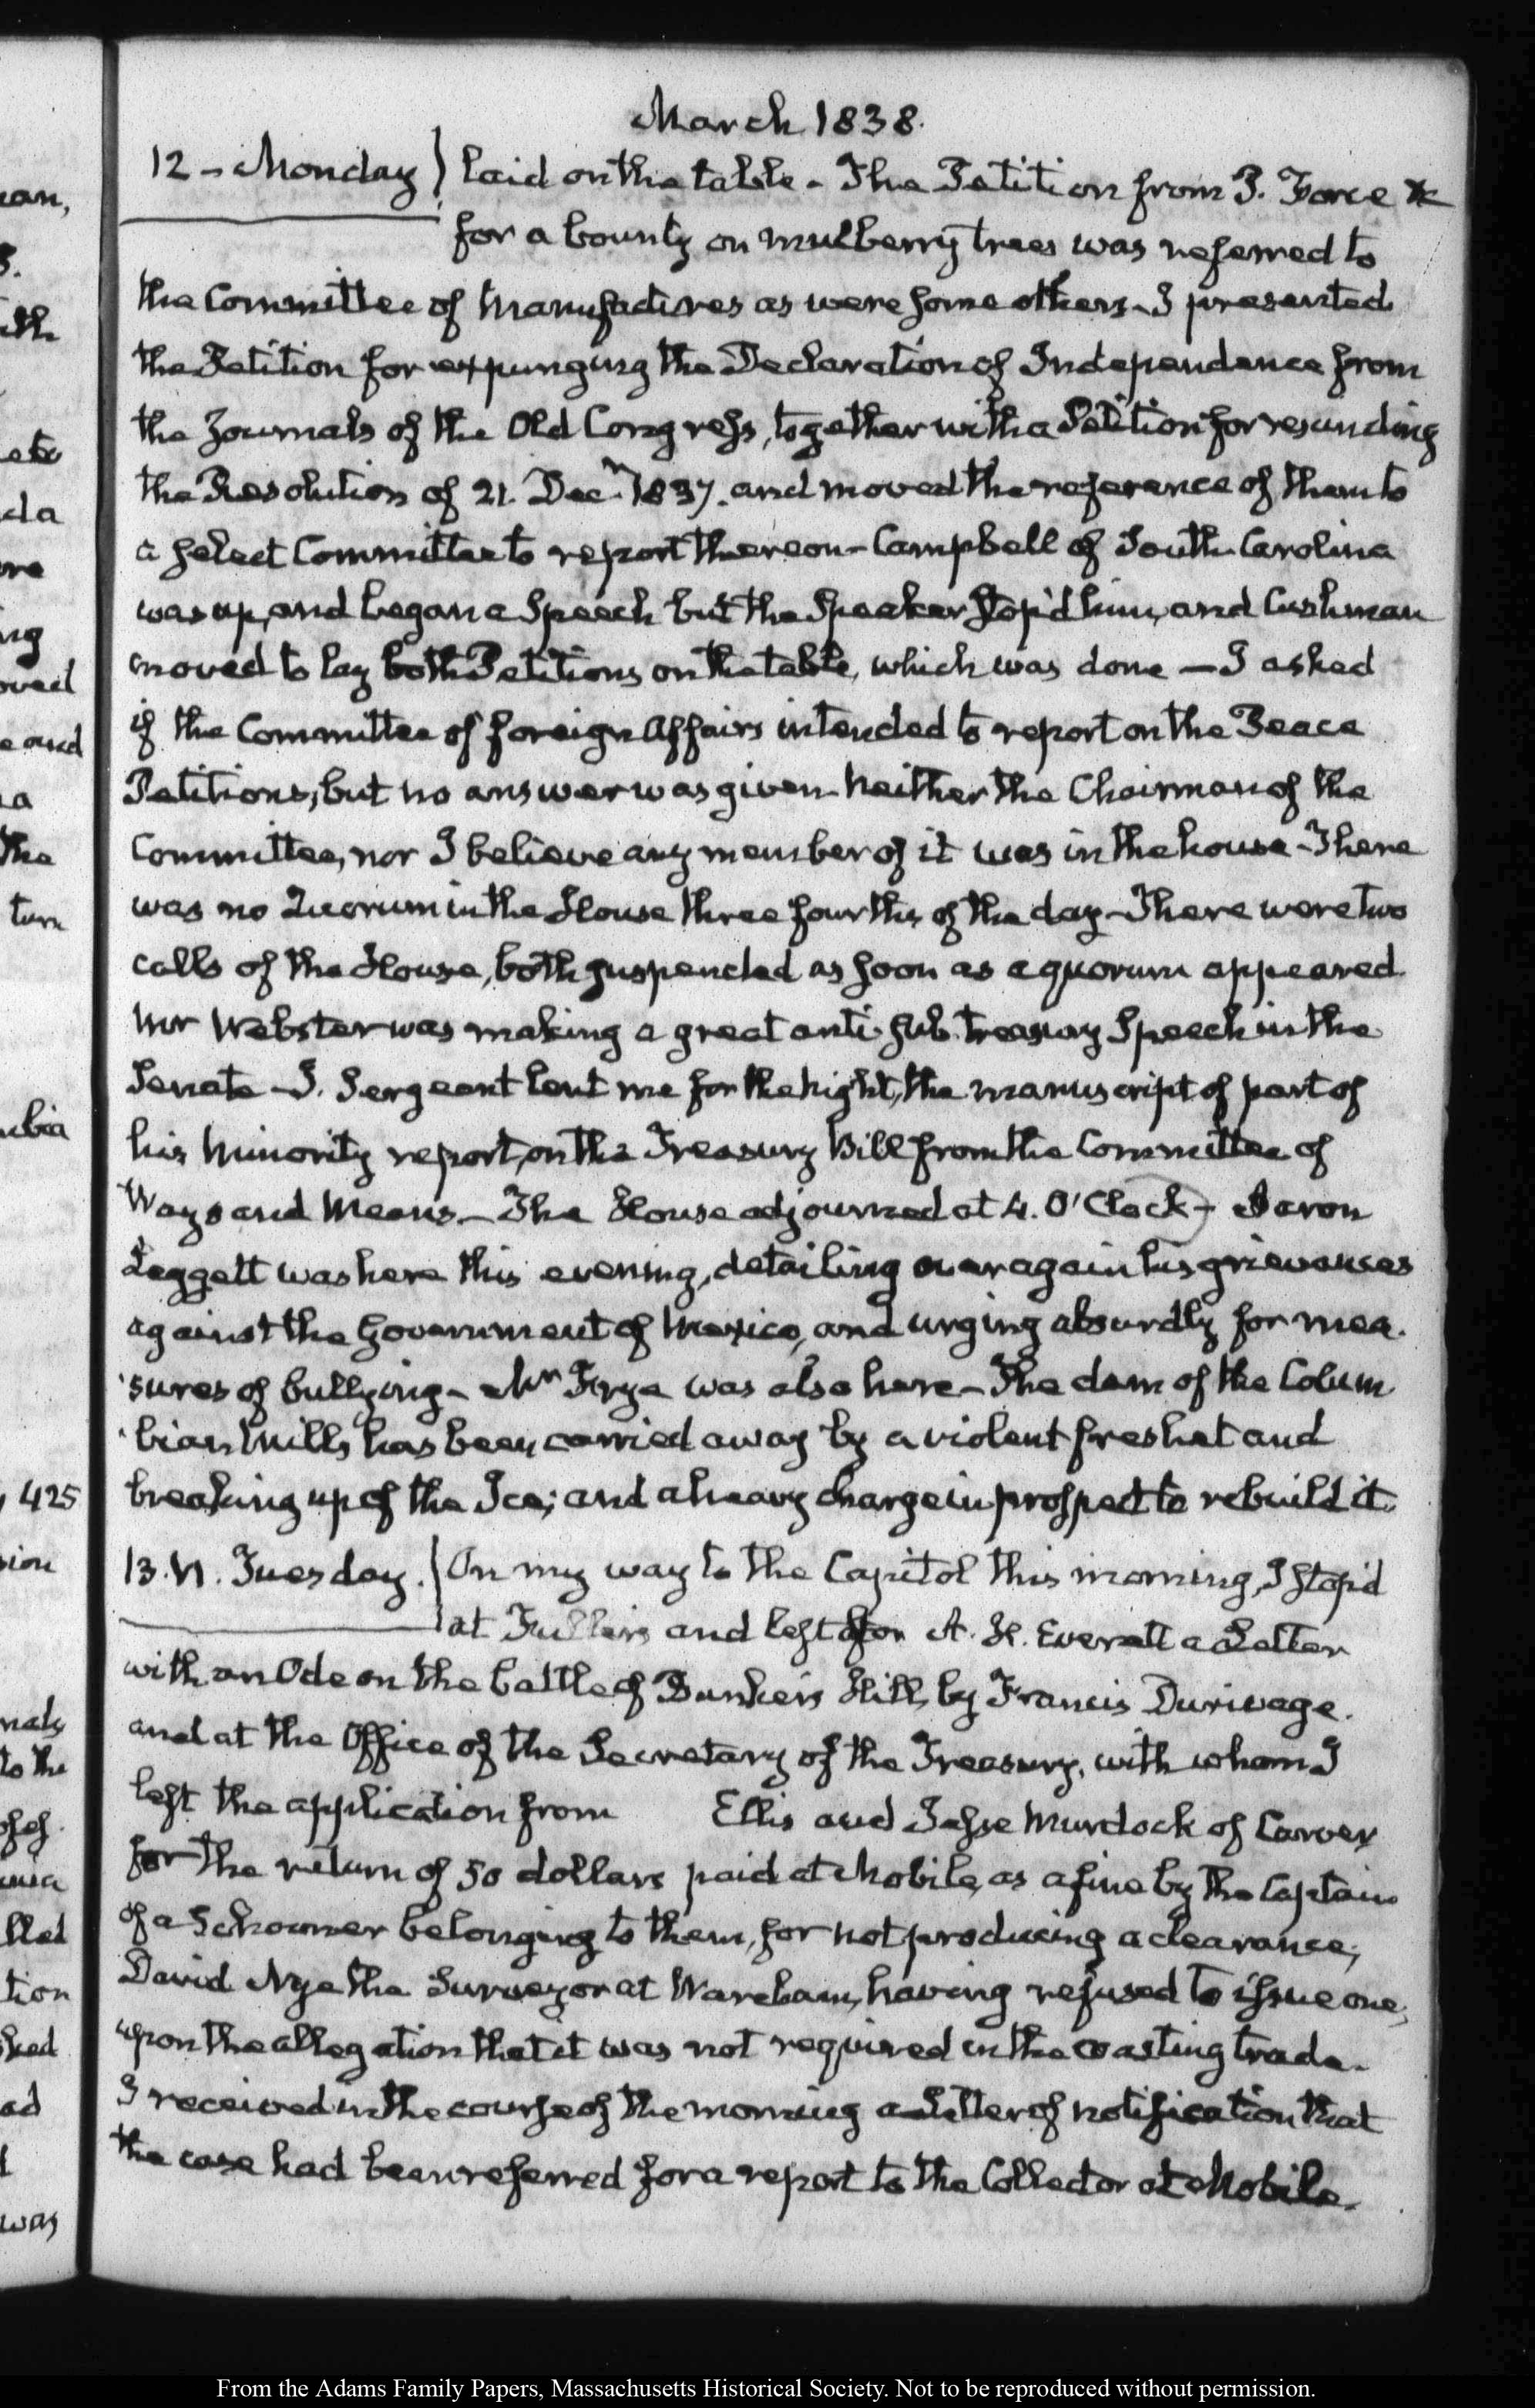 March 1838.
12 - Monday) laid on the table - The Petition from P. Force &c
for a bounty on mulberry trees was referred to
the Committee of Manufactures as were some others - I presented
the Petition for expunging the Declaration of Independence from
the Journals of the Old Congress, together with a Petition for rescinding
the Resolution of 21. Decr. 1837. and moved the reference of them to
a select Committee to report thereon - Campbell of South Carolina
was up, and began a Speech but the Speaker stop'd him, and Cushman
moved to lay both Petitions on the table, which was done — I asked
if the Committee of foreign Affairs intended to report on the Peace
Petitions, but no answer was given - Neither the Chairman of the
Committee, nor I believe any member of it was in the house - There
was no Quorum in the House three fourths of the day - There were two
calls of the House, both suspended as soon as a quorum appeared
Mr Webster was making a great anti-sub-treasury Speech in the
Senate - J. Sergeant lent me for the night, the manuscript of part of
his Minority report, on the Treasury Bill from the Committee of
Ways and Means. - The House adjourned at 4. O'Clock - Aaron
Leggett was here this evening, detailing over again his grievances
against the Government of Mexico, and urging absurdly for mea-
sures of bullying - Mr Frye was also here - The dam of the Colum
bian Mills has been carried away by a violent freshet and
breaking up of the Ice; and a heavy charge in prospect to rebuild it.
13. VI. Tuesday.) On my way to the Capitol this morning, I stop'd
at Fuller's and left for A. H. Everett a Letter
with an Ode on the battle of Bunker's Hill, by Francis Durivage.
and at the Office of the Secretary of the Treasury, with whom I
left the application from Ellis and Jesse Murdock of Carver
for the return of 50 dollars paid at Mobile, as a fine by the Captain
of a Schooner belonging to them, for not producing a clearance;
David Nye the Surveyor at Wareham, having refused to issue one,
upon the allegation that it was not required in the coasting trade.
I received in the course of the morning a Letter of notification that
the case had been referred for a report to the Collector at Mobile.
an,
ith
ete
da
re
ng
oved
e and
a
the
turn
bia
425
sion
nals
to the
lled
tion
ked
ad
was
From the Adams Family Papers, Massachusetts Historical Society. Not to be reproduced without permission.